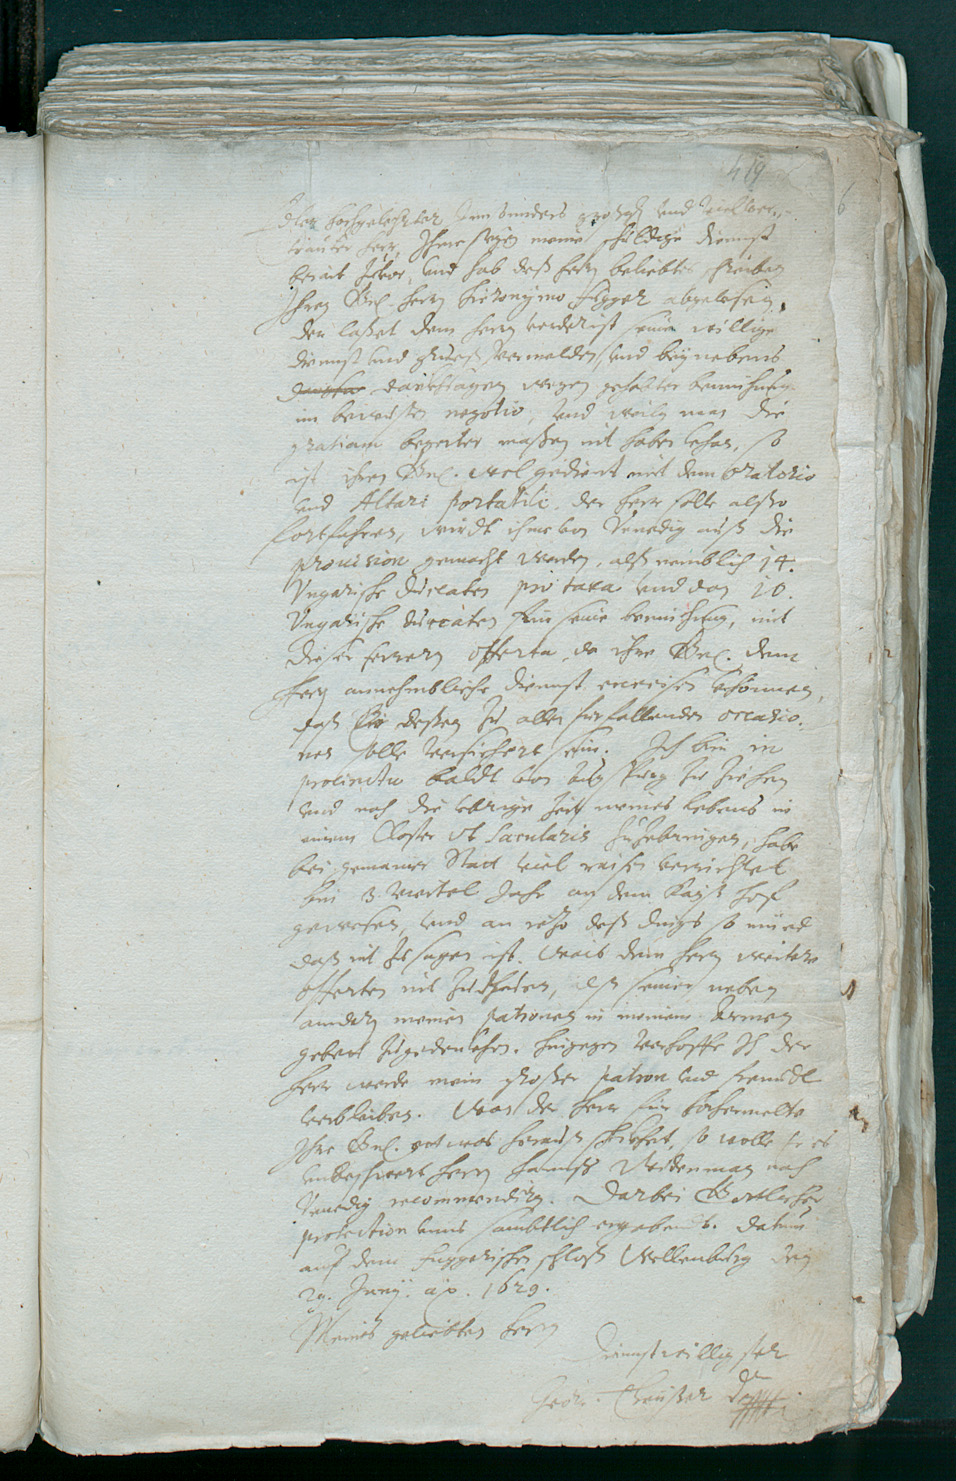 419
Edler hochgelehrter Inn sonders großg. und vielver-
trauter herr, Ihme seyen meine schuldige dienst
bereit zuvor, und hab deß herrn beliebtes schreiben
Ihren Gn. herrn hieronymo fugger abgelesen,
der lasset dem herrn vorderist seine willige
dienst und grueß vermelden, und beynebens
danckhsagen wegen gehabter bemiehung
im bewusten negotio, und weiln man die
gratiam begerter maßen nit haben kehan, so
ist ihren Gn. wol gedient mit dem oratorio
und Altari portatili. der herr solle also
fortfahren, wirdt ihme von Venedig auß die
provision gemacht werden, alß nemblich 14.
Ungarische ducaten pro taxa und dan 10.
Ungarische ducaten für seine bemiehung, mit
dieser fernern offerta, da ihre Gn. dem
herrn annehmbliche dienst erweisen khönnen,
daß Er dessen zu allen fürfallenden occasio-
nes solle versichert sein. Ich bin in
procinctu baldt von Augspurg zu ziehen
und noch die uebrige Zeit meines lebens in
einem Closter ut Saecularis zuzebringen, habe
bei gemainer Statt viel raisen verrichtet
bin 3. viertel Jahr an dem Kays. hof
gewesen, und an iezo deß dings so müed
daß nit zu sagen ist. Waiß dem herrn weitere
offerten nit zuthuen, alß seiner neben
andern meinen patronen in meinem Armen
gebett zugedenckhen. hingegen verhoffe Ich der
herr werde mein grosser patron und freundt
verbleiben. Wan der herr für hochermelte
Ihre Gn. etwas herauß schickhet, so wolle er es
unbeschwert herrn hannß Weidenman nach
Venedig recommendirn. Darbei Göttlicher
protection unns sambtlich ergebendt. Datum
auf dem fuggerischen schloß Wellenburg den
20. Junij. ao. 1629.
Meines geliebten herrn
Dienstwilligster